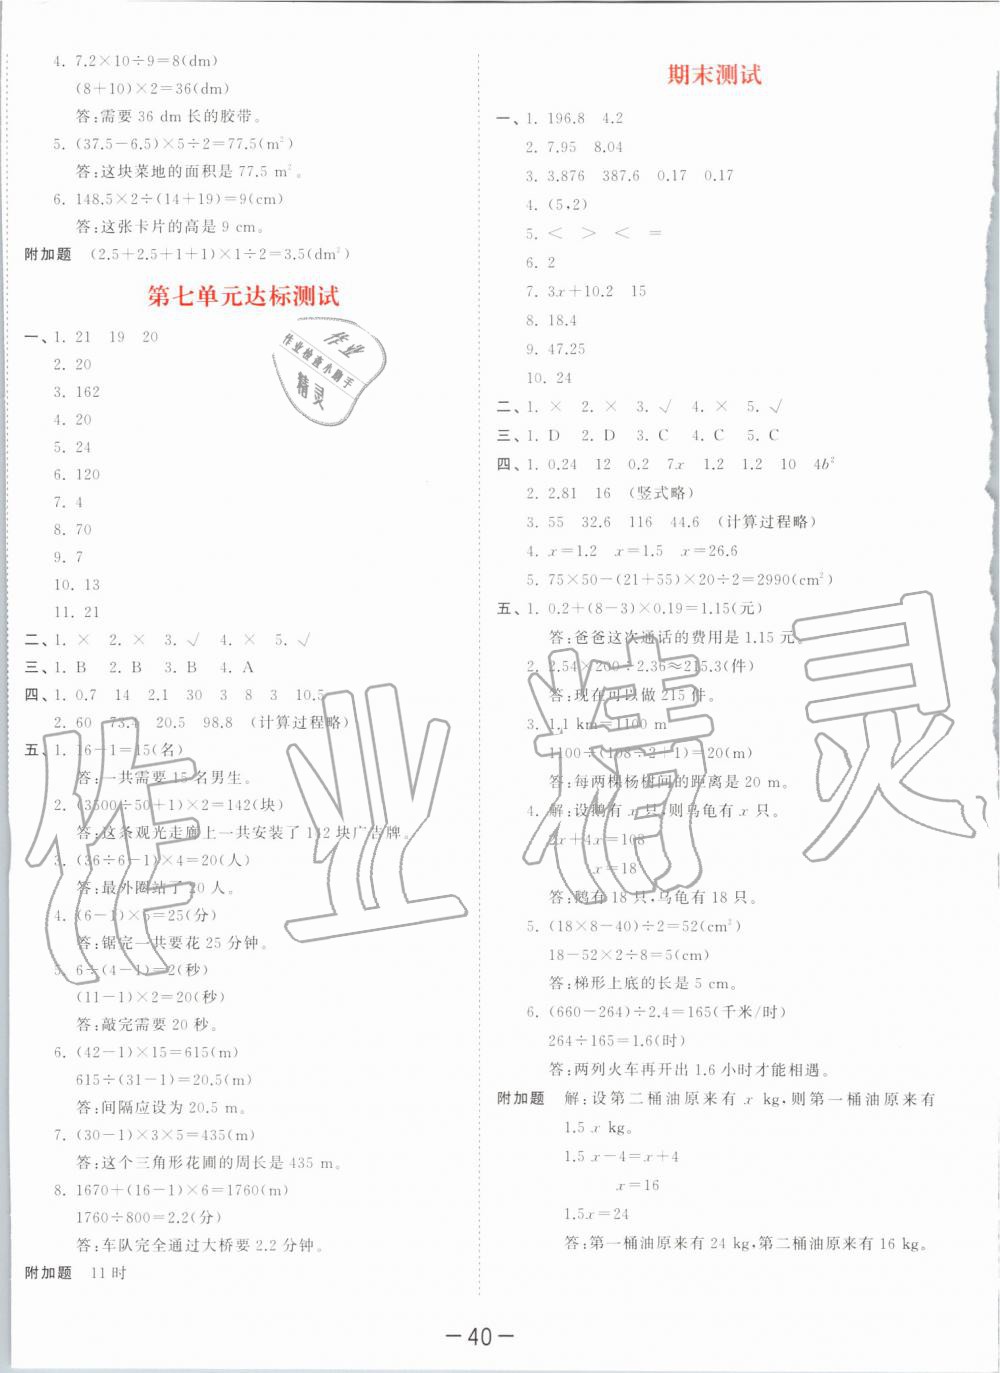 4. 7.2×10÷9=8(dm)
(8+10)×2=36(dm)
答:需要 36 dm 长的胶带。
5. (37.5-6.5)×5÷2=77.5(m²)
答:这块菜地的面积是 77.5 m²。
6. 148.5×2÷(14+19)=9(cm)
答:这张卡片的高是 9 cm。
附加题 (2.5+2.5+1+1)×1÷2=3.5(dm²)
第七单元达标测试
一、1. 21 19 20
2. 20
3. 162
4. 20
5. 24
6. 120
7. 4
8. 70
9. 7
10. 13
11. 21
二、1. × 2. × 3. √ 4. × 5. √
三、1. B 2. B 3. B 4. A
四、1. 0.7 14 2.1 30 3 8 3 10.5
2. 60 73.4 20.5 98.8 (计算过程略)
五、1. 16-1=15(名)
答:一共需要 15 名男生。
2. (3500÷50+1)×2=142(块)
答:这条观光走廊上一共安装了 142 块广告牌。
3. (36÷6-1)×4=20(人)
答:最外圈站了 20 人。
4. (6-1)×5=25(分)
答:锯完一共要花 25 分钟。
5. 6÷(4-1)=2(秒)
(11-1)×2=20(秒)
答:敲完需要 20 秒。
6. (42-1)×15=615(m)
615÷(31-1)=20.5(m)
答:间隔应设为 20.5 m。
7. (30-1)×3×5=435(m)
答:这个三角形花圃的周长是 435 m。
8. 1670+(16-1)×6=1760(m)
1760÷800=2.2(分)
答:车队完全通过大桥要 2.2 分钟。
附加题 11 时
作业
作业检查小助手
精灵
期末测试
一、1. 196.8 4.2
2. 7.95 8.04
3. 3.876 387.6 0.17 0.17
4. (5,2)
5. < > < =
6. 2
7. 3x+10.2 15
8. 18.4
9. 47.25
10. 24
二、1. × 2. × 3. √ 4. × 5. √
三、1. D 2. D 3. C 4. C 5. C
四、1. 0.24 12 0.2 7x 1.2 1.2 10 4b²
2. 2.81 16 (竖式略)
3. 55 32.6 116 44.6 (计算过程略)
4. x=1.2 x=1.5 x=26.6
5. 75×50-(21+55)×20÷2=2990(cm²)
五、1. 0.2+(8-3)×0.19=1.15(元)
答:爸爸这次通话的费用是 1.15 元。
2. 2.54×200÷2.36≈215.3(件)
答:现在可以做 215 件。
3. 1.1 km=1100 m
1100÷(108÷2+1)=20(m)
答:每两棵杨树间的距离是 20 m。
4. 解:设鹅有 x 只,则乌龟有 x 只。
2x+4x=108
x=18
答:鹅有 18 只,乌龟有 18 只。
5. (18×8-40)÷2=52(cm²)
18-52×2÷8=5(cm)
答:梯形上底的长是 5 cm。
6. (660-264)÷2.4=165(千米/时)
264÷165=1.6(时)
答:两列火车再开出 1.6 小时才能相遇。
附加题 解:设第二桶油原来有 x kg,则第一桶油原来有
1.5x kg。
1.5x-4=x+4
x=16
1.5x=24
答:第一桶油原来有 24 kg,第二桶油原来有 16 kg。
作业精灵
-40-